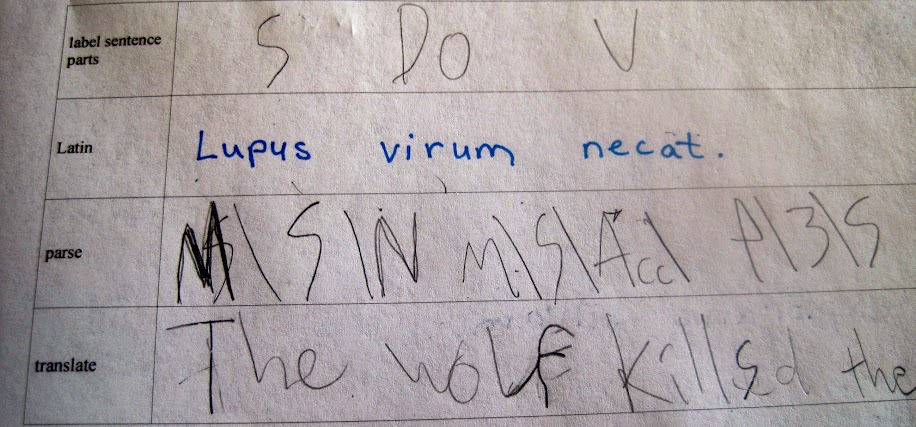 label sentence parts S DO V
Latin Lupus virum necat.
parse M\S\N m\S\Acc\ P\3\S
translate The wolf killed the